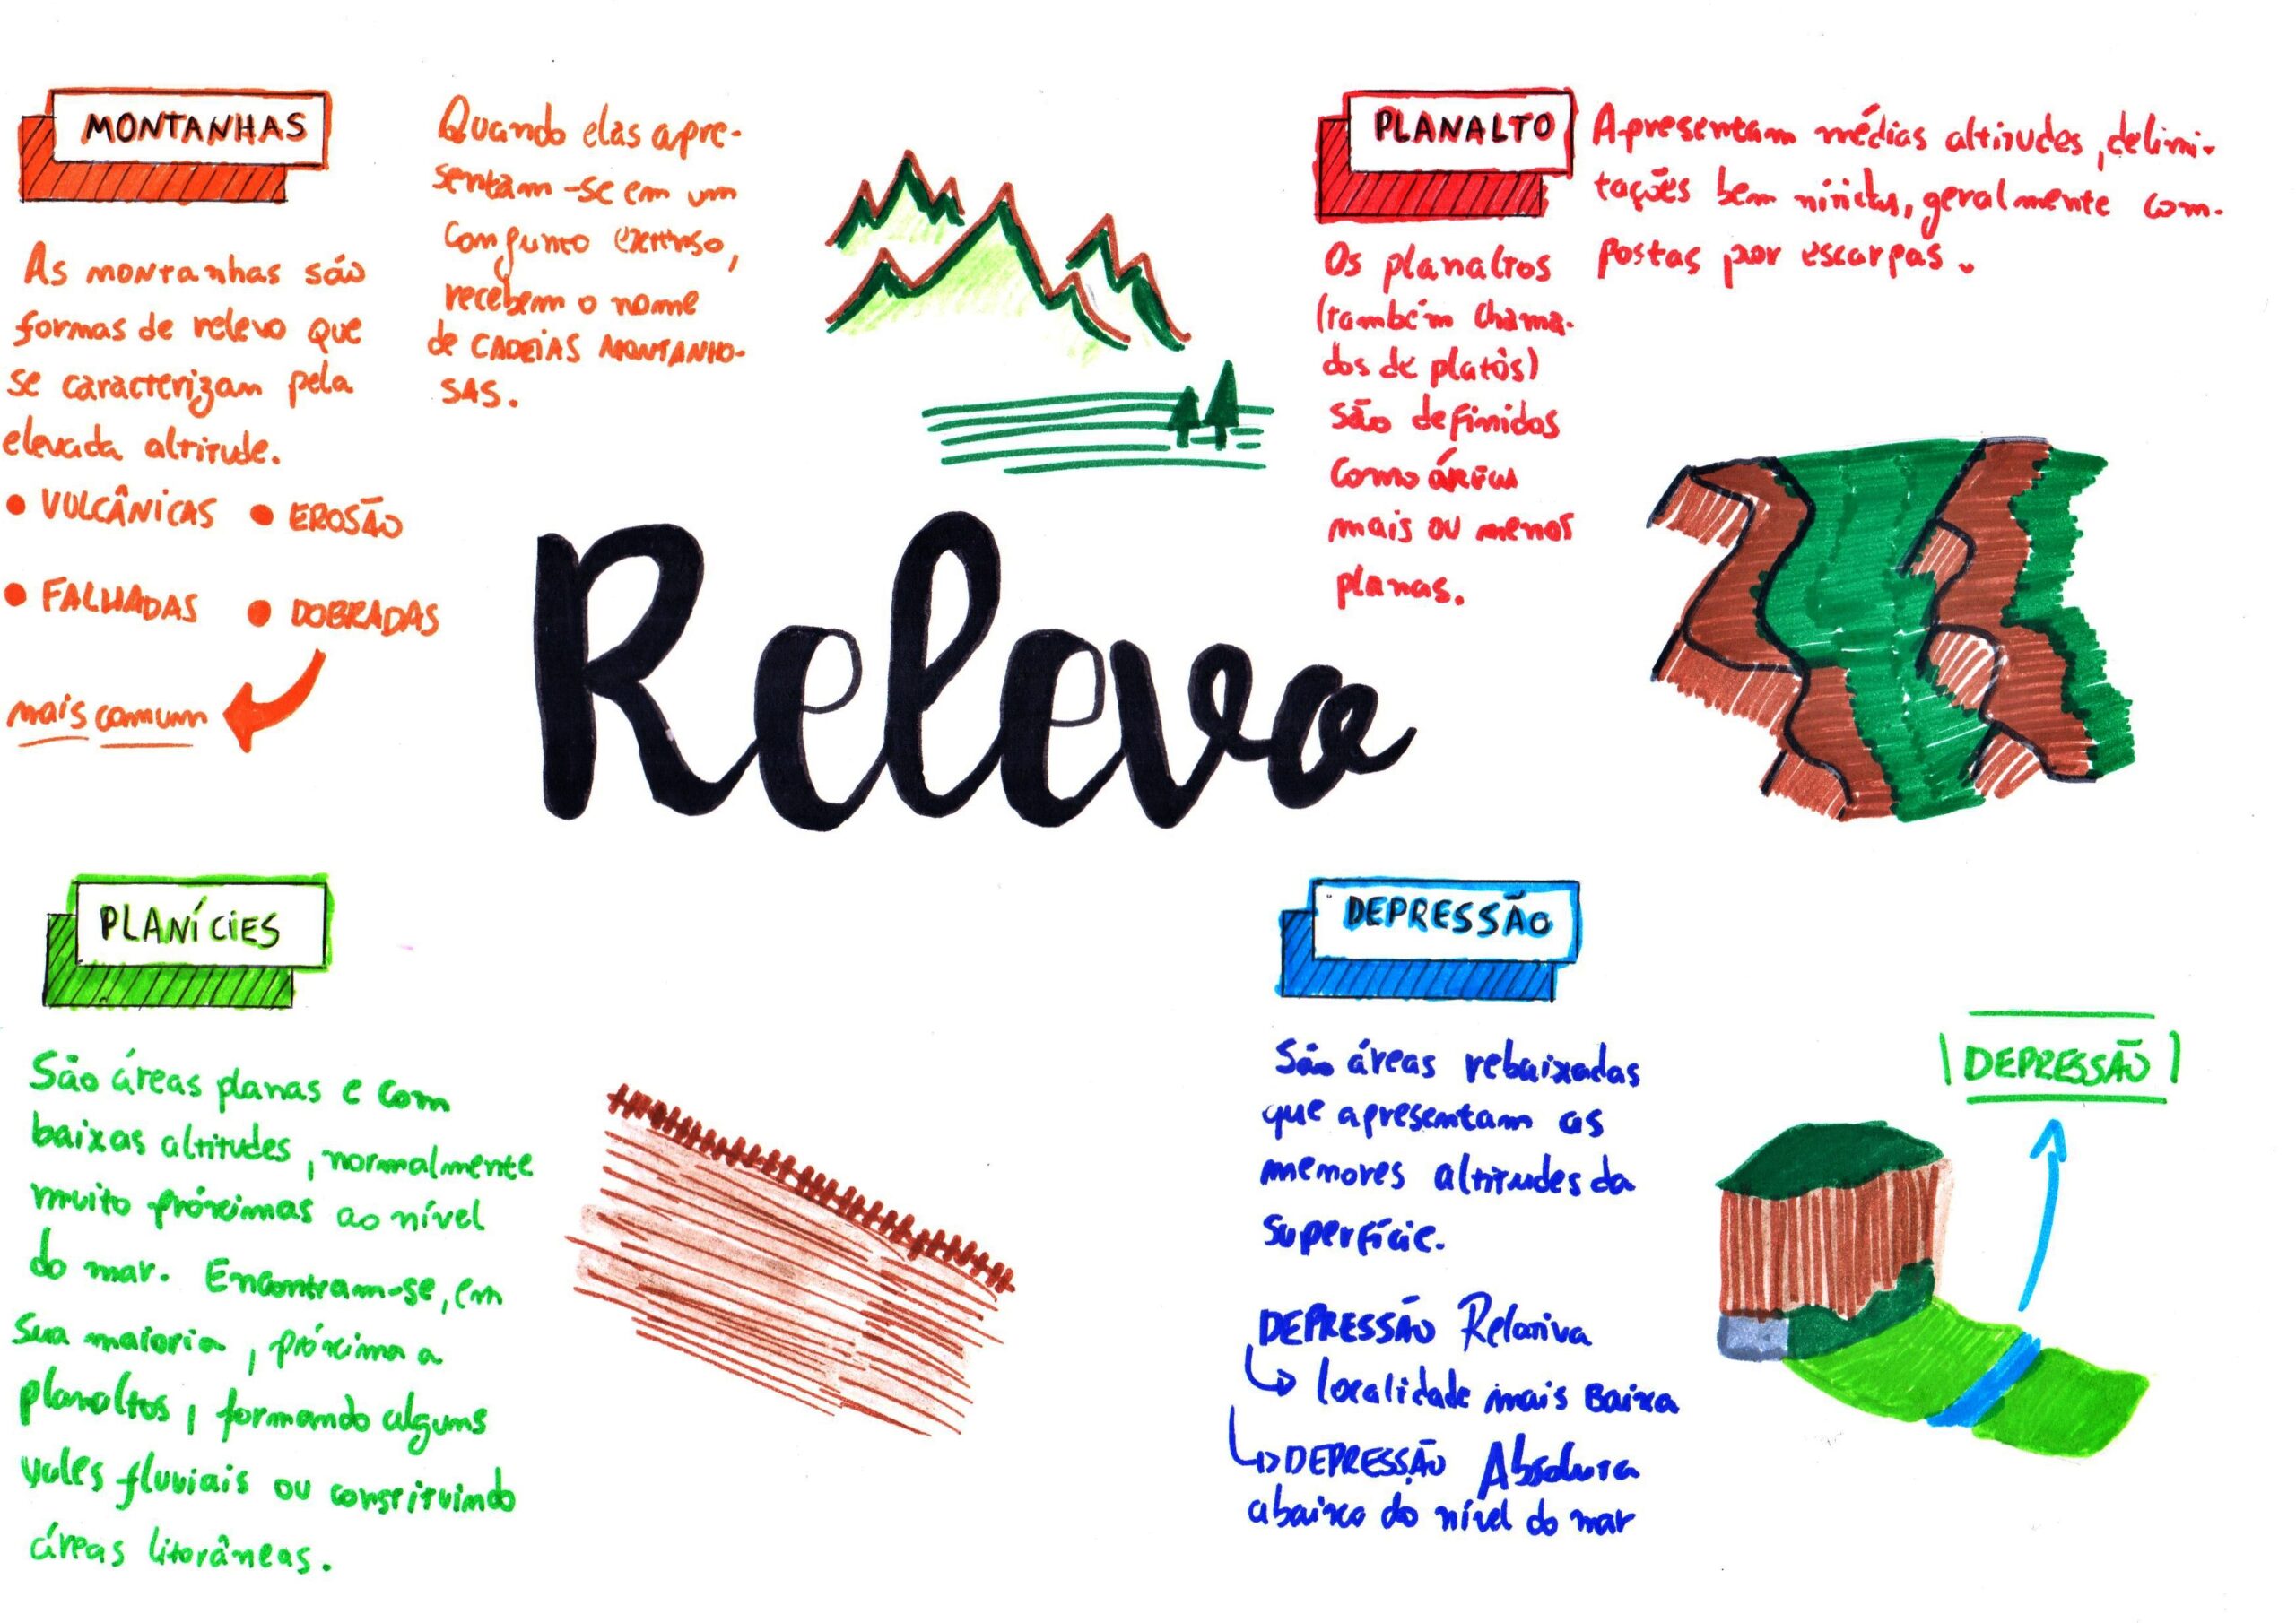 MONTANHAS
As montanhas são
formas de relevo que
se caracterizam pela
elevada altitude.
• VULCÂNICAS • EROSÃO
• FALHADAS • DOBRADAS
mais comum
Quando elas apre-
sentam-se em um
conjunto extenso,
recebem o nome
de CADEIAS MONTANHO-
SAS.
PLANALTO
Apresentam médias altitudes, delimi-
tações bem nítidas, geralmente com-
postas por escarpas.
Os planaltos
(também chama-
dos de platôs)
são definidos
como áreas
mais ou menos
planas.
Relevo
PLANÍCIES
São áreas planas e com
baixas altitudes, normalmente
muito próximas ao nível
do mar. Encontram-se, em
sua maioria, próxima a
planaltos, formando alguns
vales fluviais ou constituindo
áreas litorâneas.
DEPRESSÃO
São áreas rebaixadas
que apresentam as
menores altitudes da
superfície.
DEPRESSÃO Relativa
localidade mais Baixa
DEPRESSÃO Absoluta
abaixo do nível do mar
DEPRESSÃO